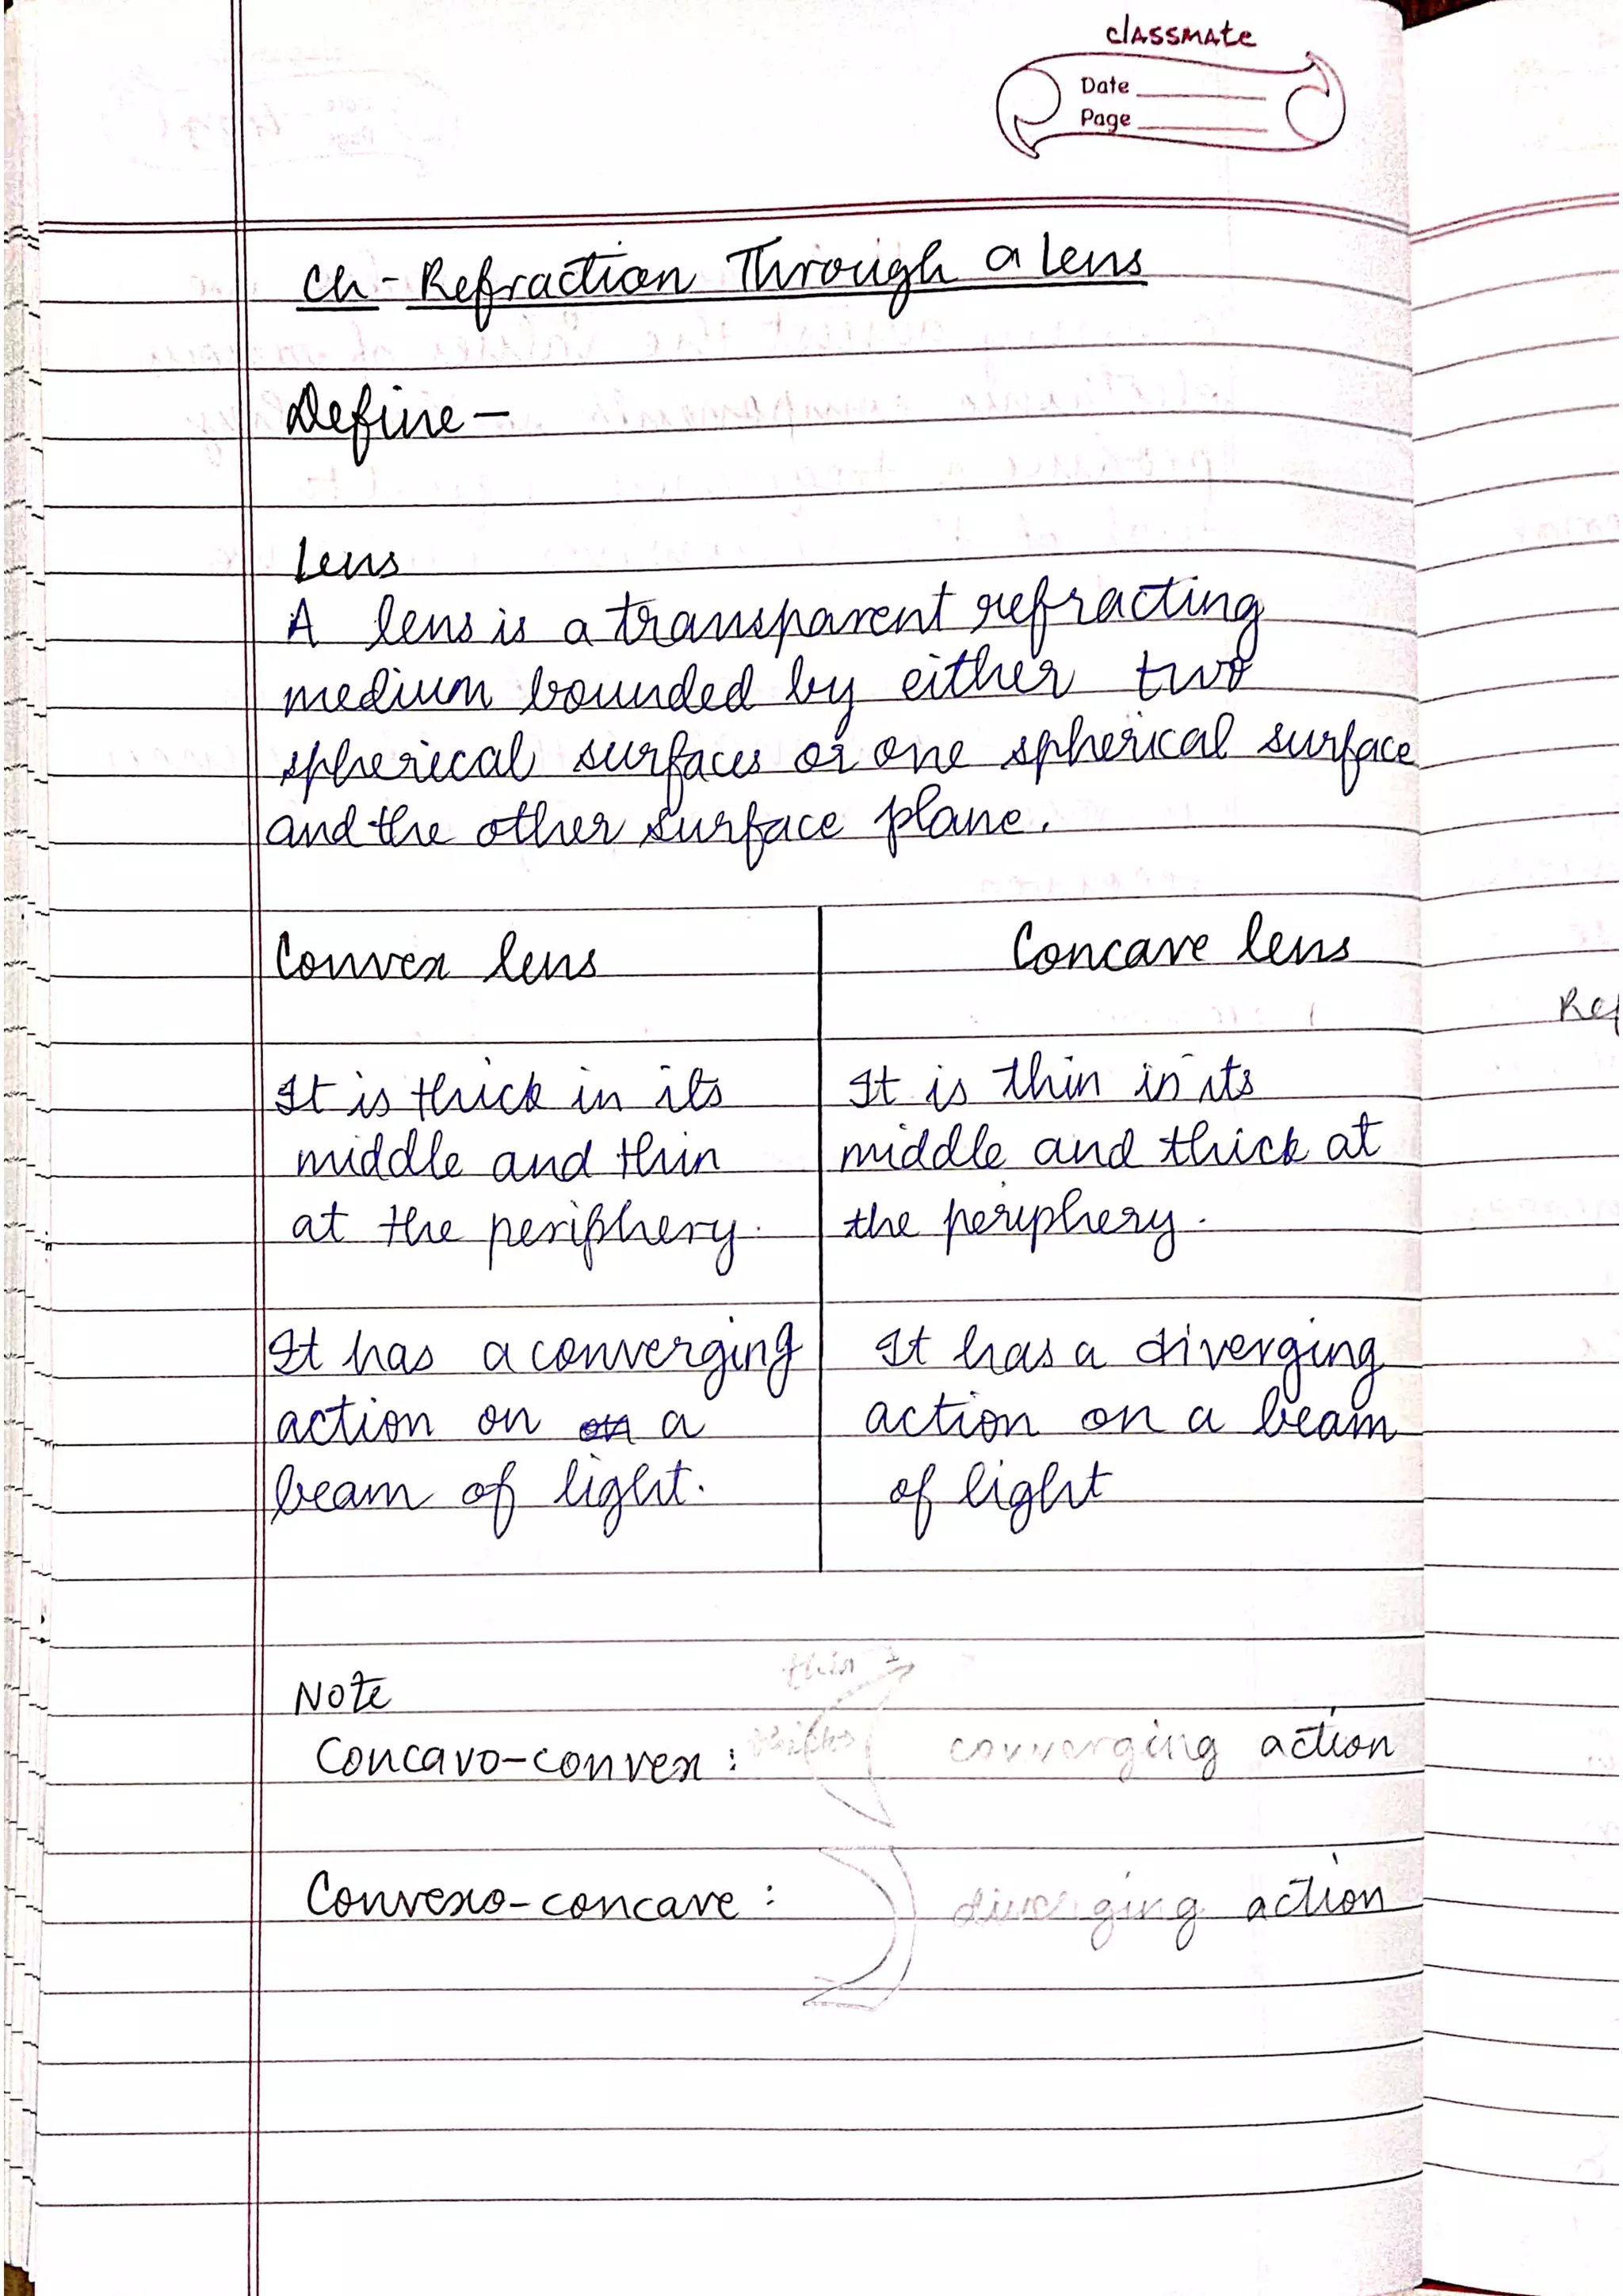 classmate
Date
Page
Ch - Refraction Through a lens
Define -
Lens
A lens is a transparent refracting
medium bounded by either two
spherical surfaces or one spherical surface
and the other surface plane.
Convex lens
It is thick in its
middle and thin
at the periphery.
It has a converging
action on a
beam of light.
Concave lens
It is thin in its
middle and thick at
the periphery.
It has a diverging
action on a beam
of light
Note
thin
Concavo-convex : converging action
Convexo-concave : diverging action